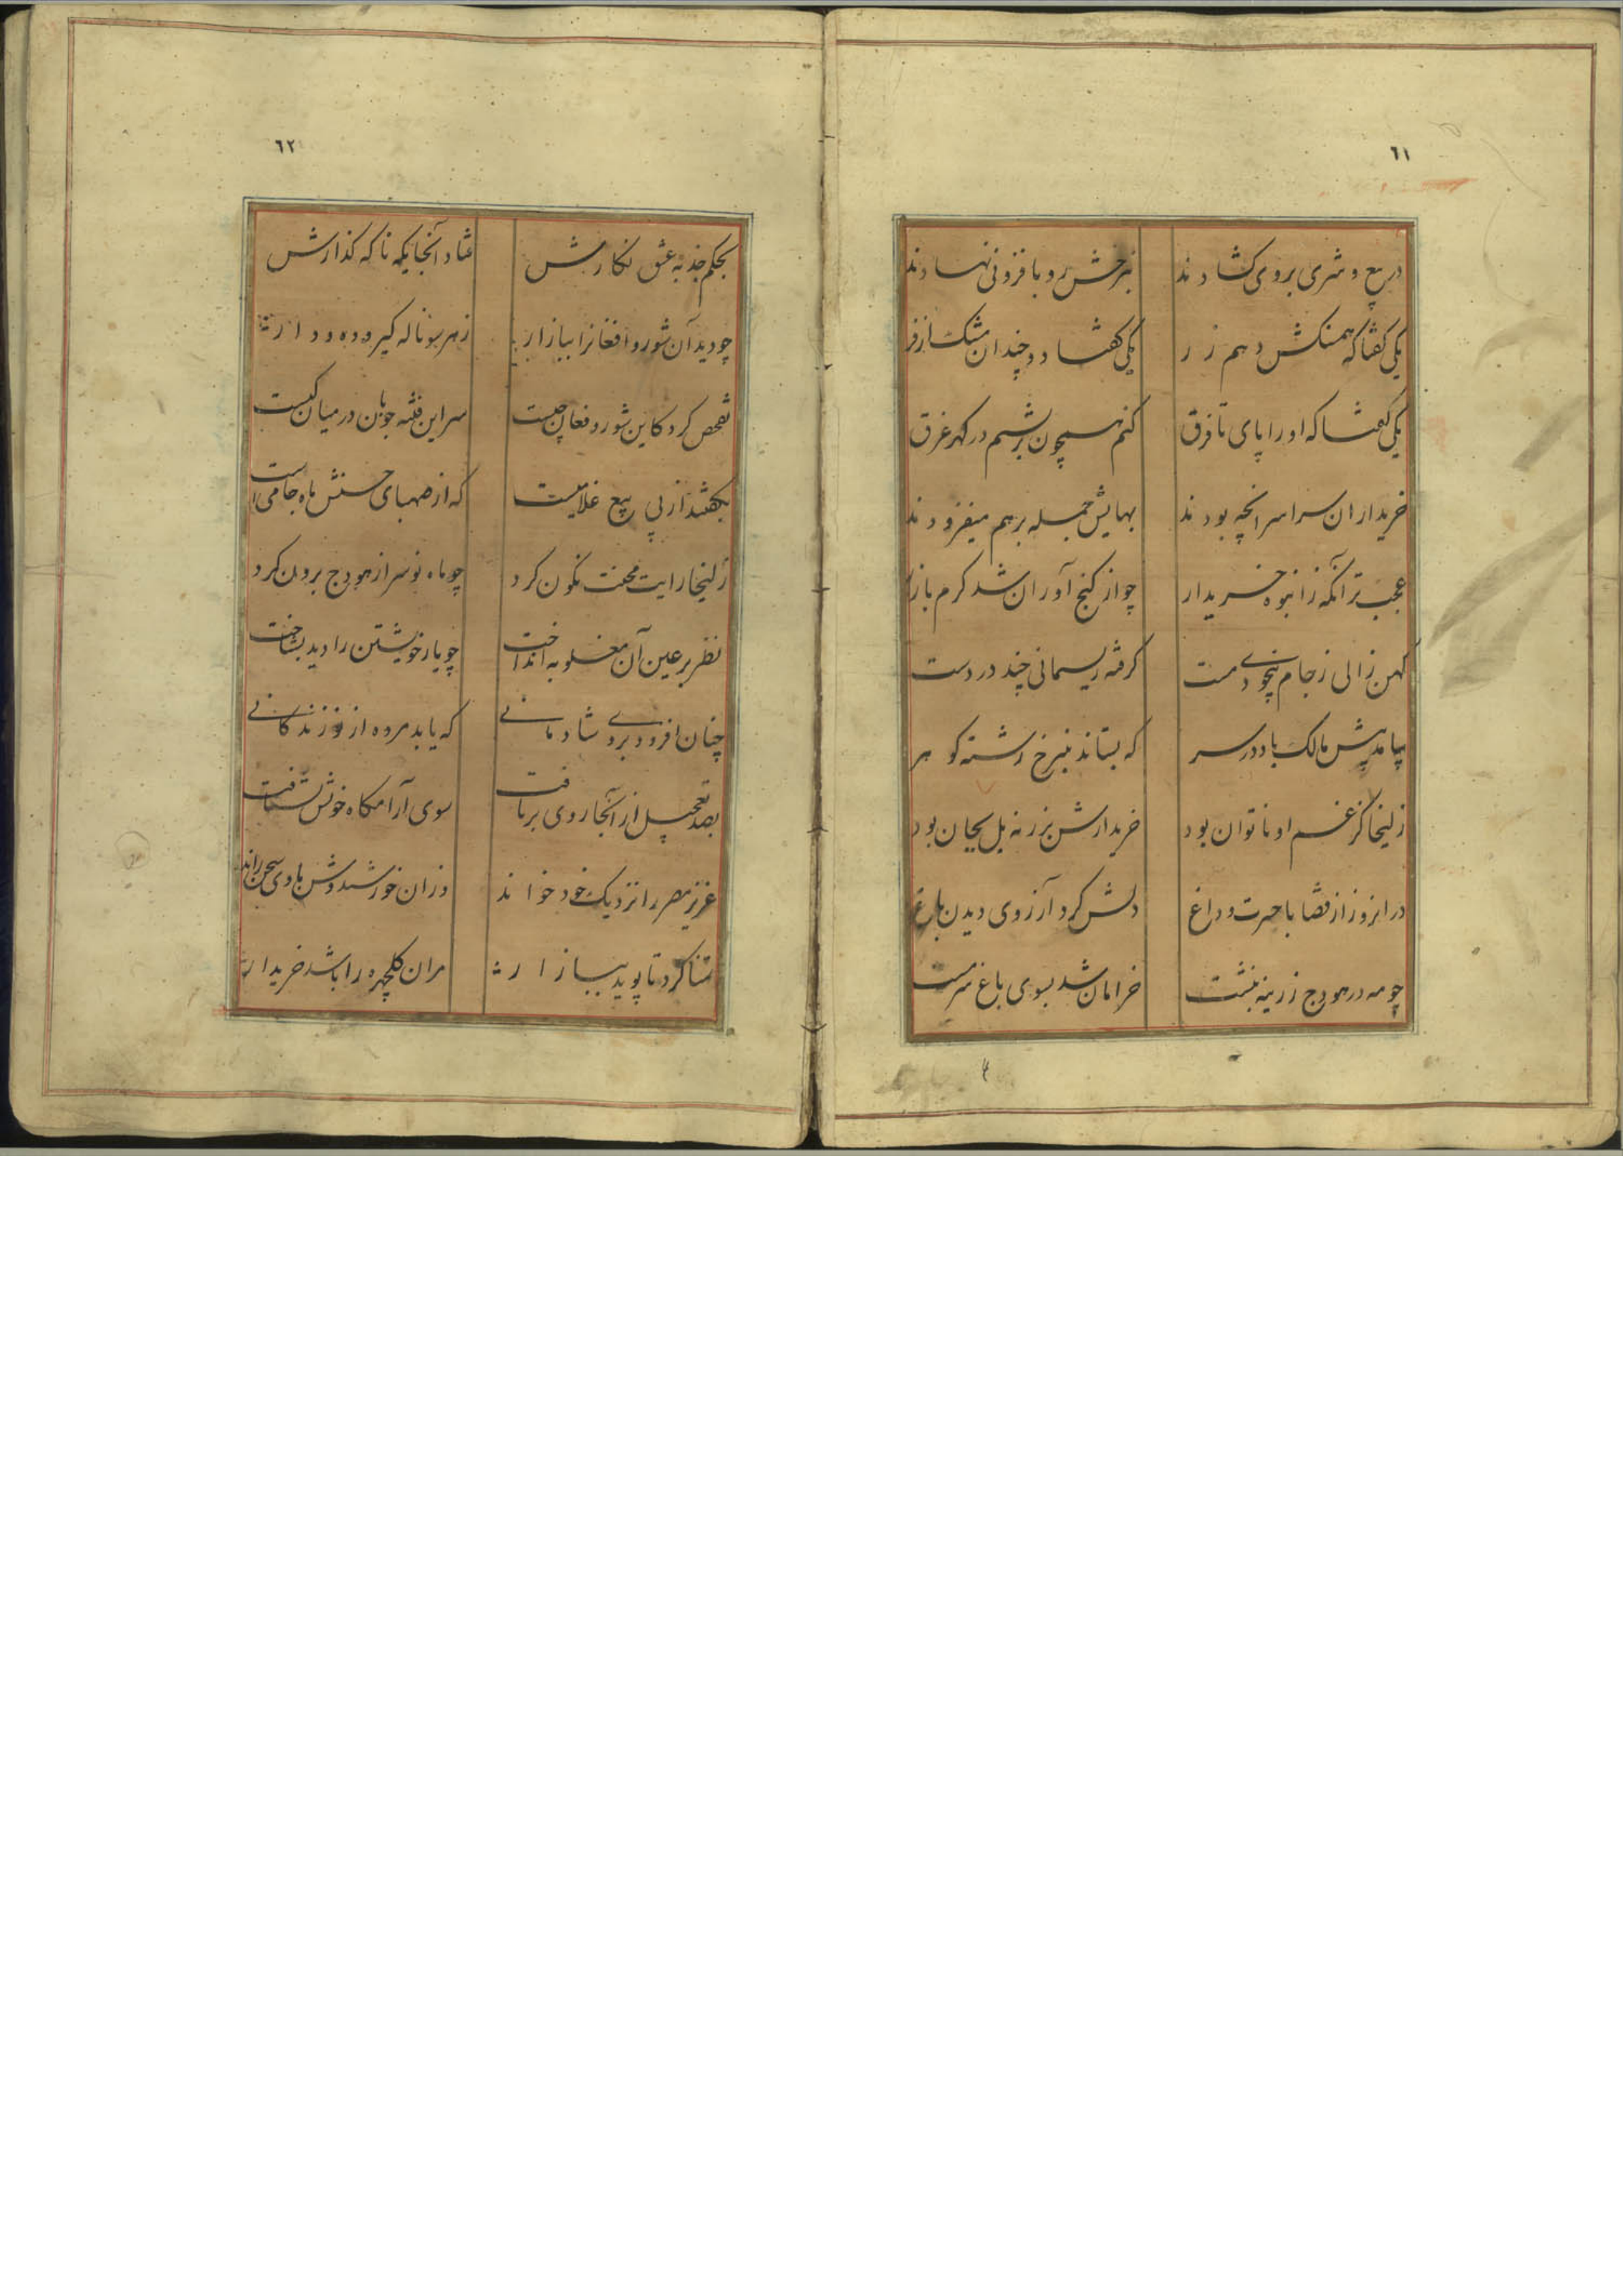 ٦١
در بیع و شری بروی کشادند بنرخش رو بافزونی نهادند
یکی کفتا که همسنکش دهم زر یکی کفتا دو چندان مشک اذفر
یکی کفتا که او را پای تا فرق کنم همچون برشیم در کهر غرق
خریداران سراسر انچه بودند بهایش جمله برهم میفزودند
عجبتر آنکه ز انبوه خریدار چو از کنج آوران شد کرم بازار
کهن زالی ز جام بیخودی مست کرفته ریسمانی چند در دست
بیامد پیش مالک باد در سر که بستاند بنرخ رشته کوهر
زلیخا کز غم او ناتوان بود خریدارش بزر نه بل بجان بود
در انروز از قضا با حسرت و داغ دلش کرد آرزوی دیدن باغ
چو مه در هودج زرینه بنشست خرامان شد بسوی باغ سرمست
٦٢
بحکم جذبه عشق نکارش فتاد آنجایکه ناکه کذارش
چو دید آن شور و افغانرا ببازار ز هر سو ناله کیر و ده و دار
تفحص کرد کاین شور و فغان چیست سر این فتنه جویان در میان کیست
بکفتند از پی بیع غلامیست که از صهبای حسنش ماه جامیست
زلیخا رایت محنت نکون کرد چو ماه نو سر از هودج برون کرد
نظر بر عین آن مغلوبه انداخت چو یار خویشتن را دید بشناخت
چنان افزود بروی شادمانی که یابد مرده از نو زندکانی
بصد تعجیل از آنجا روی برتافت سوی آرامکاه خویش بشتافت
عزیز مصر را نزدیک خود خواند وزان خورشیدوش با وی سخن راند
تمنا کرد تا پوید ببازار مران کلچهره را باشد خریدار